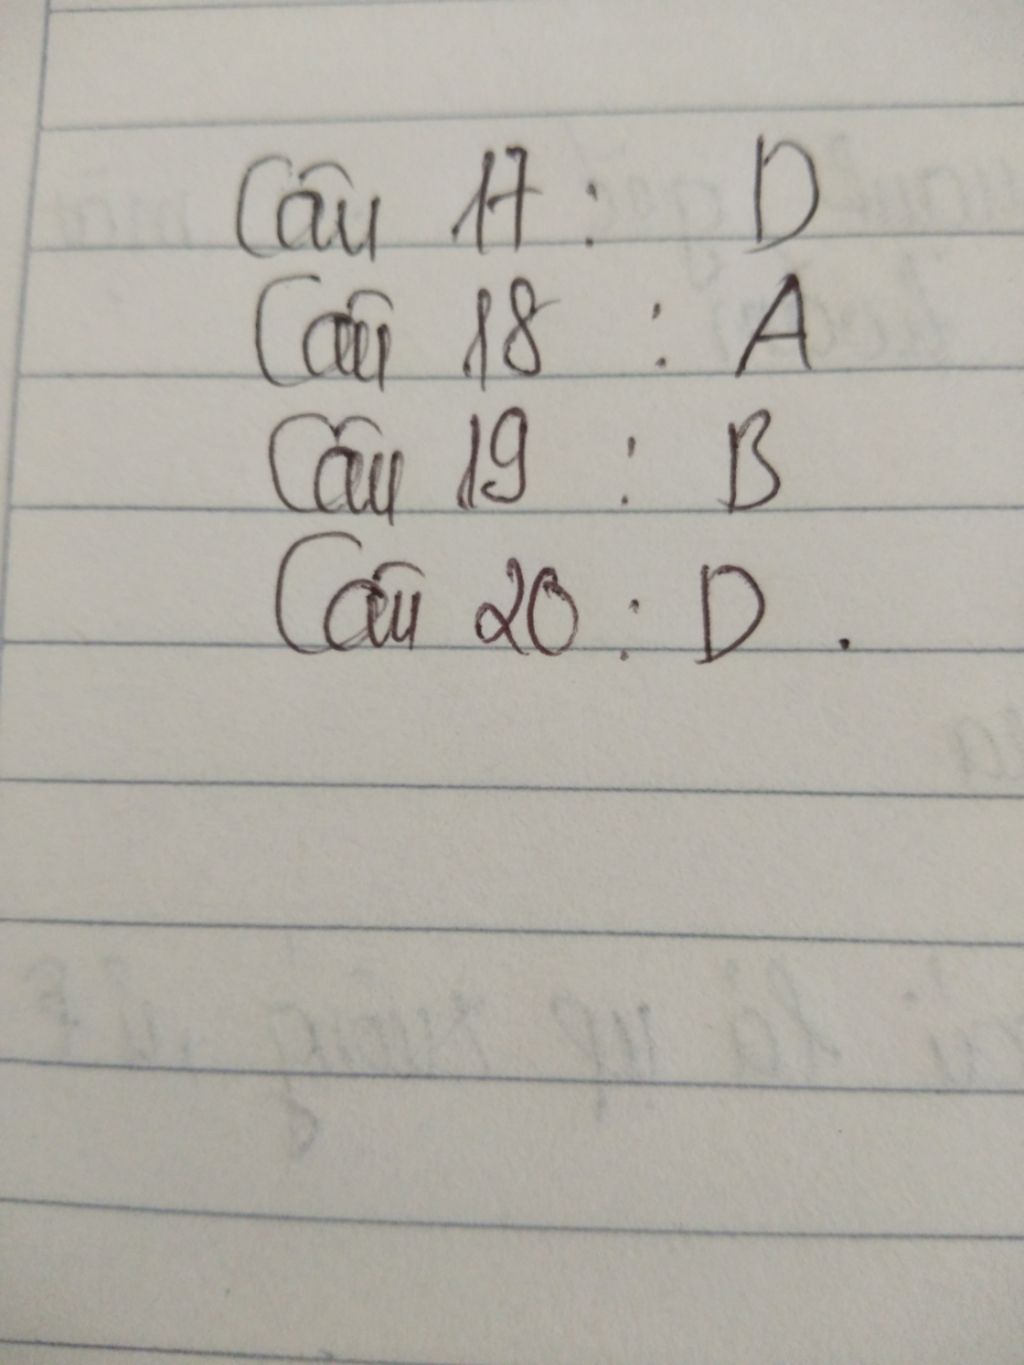 Câu 17 : D
Câu 18 : A
Câu 19 : B
Câu 20 : D .